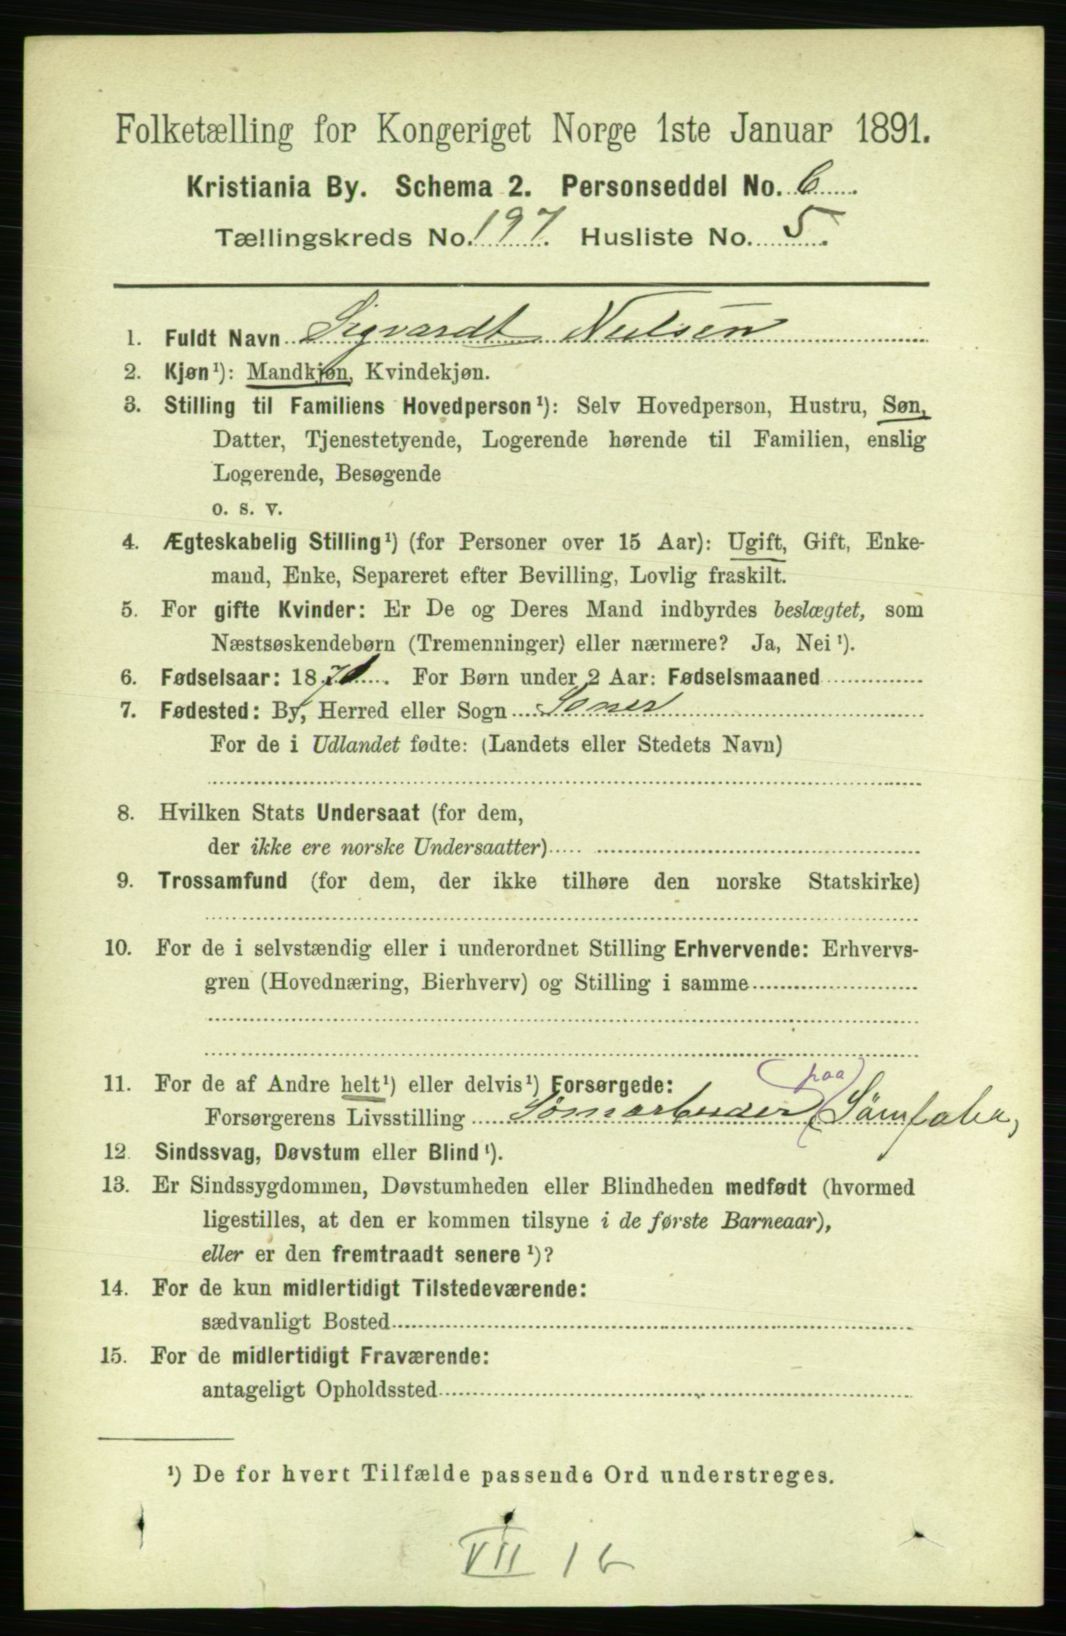 Folketælling for Kongeriget Norge 1ste Januar 1891.
Kristiania By. Schema 2. Personseddel No. 6.
Tællingskreds No. 197. Husliste No. 5.
1. Fuldt Navn Sigvardt Nielsen
2. Kjøn¹): Mandkjøn, Kvindekjøn.
3. Stilling til Familiens Hovedperson¹): Selv Hovedperson, Hustru, Søn,
Datter, Tjenestetyende, Logerende hørende til Familien, enslig
Logerende, Besøgende
o. s. v.
4. Ægteskabelig Stilling¹) (for Personer over 15 Aar): Ugift, Gift, Enke-
mand, Enke, Separeret efter Bevilling, Lovlig fraskilt.
5. For gifte Kvinder: Er De og Deres Mand indbyrdes beslægtet, som
Næstsøskendebørn (Tremenninger) eller nærmere? Ja, Nei¹).
6. Fødselsaar: 187 . For Børn under 2 Aar: Fødselsmaaned
7. Fødested: By, Herred eller Sogn
For de i Udlandet fødte: (Landets eller Stedets Navn)
8. Hvilken Stats Undersaat (for dem,
der ikke ere norske Undersaatter)
9. Trossamfund (for dem, der ikke tilhøre den norske Statskirke)
10. For de i selvstændig eller i underordnet Stilling Erhvervende: Erhvervs-
gren (Hovednæring, Bierhverv) og Stilling i samme
11. For de af Andre helt¹) eller delvis¹) Forsørgede:
paa
Forsørgerens Livsstilling Sømarbeider Sømfabr,
12 Sindssvag, Døvstum eller Blind¹).
13. Er Sindssygdommen, Døvstumheden eller Blindheden medfødt (hvormed
ligestilles, at den er kommen tilsyne i de første Barneaar),
eller er den fremtraadt senere¹)?
14. For de kun midlertidigt Tilstedeværende:
sædvanligt Bosted
15. For de midlertidigt Fraværende:
antageligt Opholdssted
¹) De for hvert Tilfælde passende Ord understreges.
VII 16